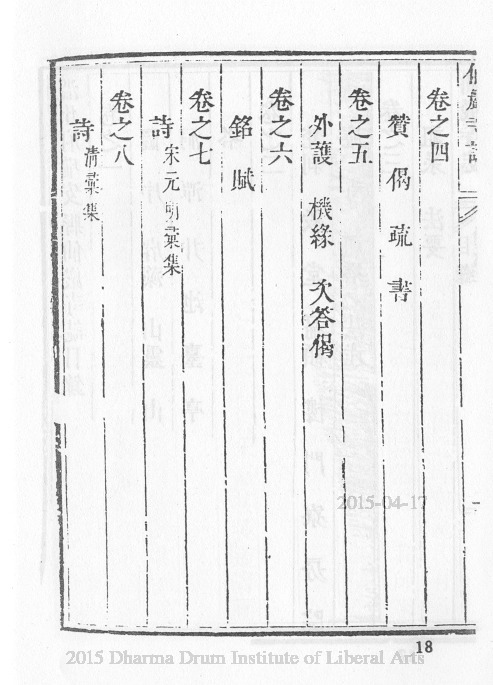 卷之四
贊 偈 疏 書
卷之五
外護 機緣 次答偈
卷之六
銘 賦
卷之七
詩 宋元明彙集
卷之八
詩 清彙集
2015-04-17
18
2015 Dharma Drum Institute of Liberal Arts